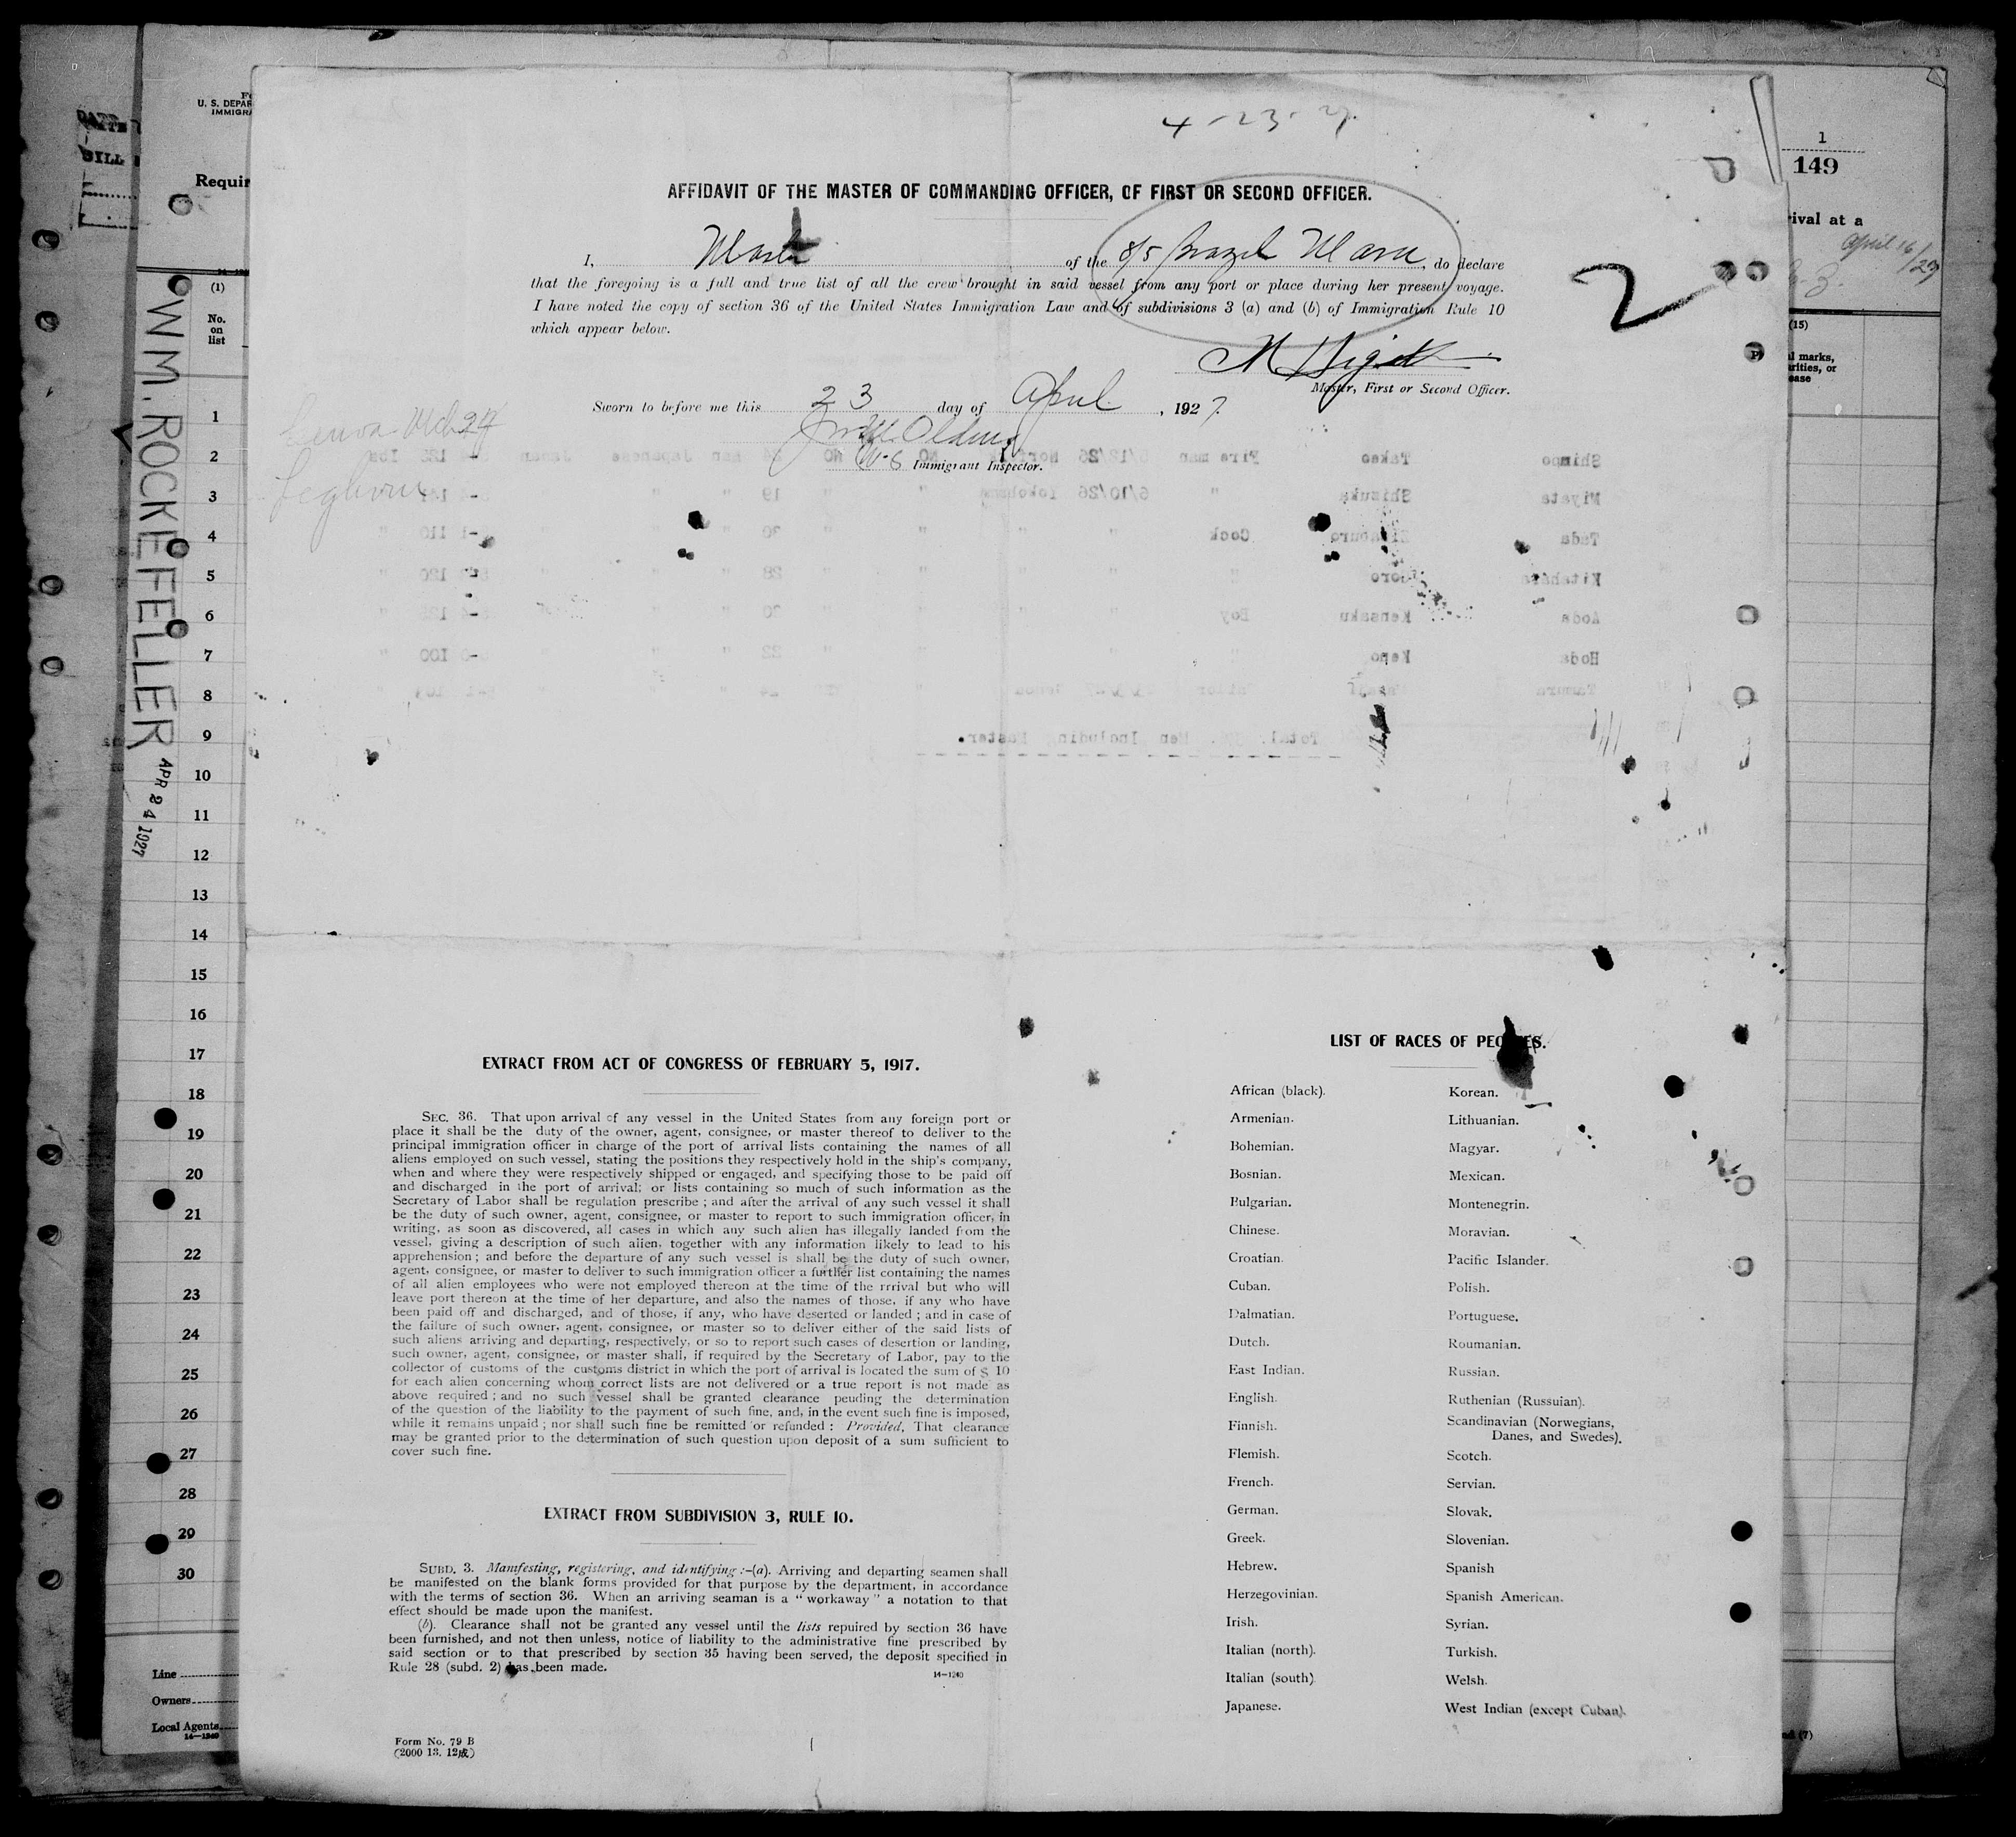 4-23-27
AFFIDAVIT OF THE MASTER OF COMMANDING OFFICER, OF FIRST OR SECOND OFFICER.
I, Master of the S/S Brazil Maru, do declare
that the foregoing is a full and true list of all the crew brought in said vessel from any port or place during her present voyage.
I have noted the copy of section 36 of the United States Immigration Law and of subdivisions 3 (a) and (b) of Immigration Rule 10
which appear below.
2
Master, First or Second Officer.
Sworn to before me this 23 day of April, 1927.
Immigrant Inspector.
Genoa Mch 24
Leghorn
Shimpo Takeo Fire man
Miyata Shizuka " 6/10/26 Yokohama " " 19 " " "
Tada Cock " " " " 30 " " " 110 "
Kitahara Goro " " " " " 28 " " " 120 "
Aoda Kensaku Boy
Hoda " " " " 22 " " " 100 "
Tamura
Total Men Including Master.
EXTRACT FROM ACT OF CONGRESS OF FEBRUARY 5, 1917.
SEC. 36. That upon arrival of any vessel in the United States from any foreign port or
place it shall be the duty of the owner, agent, consignee, or master thereof to deliver to the
principal immigration officer in charge of the port of arrival lists containing the names of all
aliens employed on such vessel, stating the positions they respectively hold in the ship's company,
when and where they were respectively shipped or engaged, and specifying those to be paid off
and discharged in the port of arrival; or lists containing so much of such information as the
Secretary of Labor shall be regulation prescribe; and after the arrival of any such vessel it shall
be the duty of such owner, agent, consignee, or master to report to such immigration officer, in
writing, as soon as discovered, all cases in which any such alien has illegally landed from the
vessel, giving a description of such alien, together with any information likely to lead to his
apprehension; and before the departure of any such vessel is shall be the duty of such owner,
agent, consignee, or master to deliver to such immigration officer a further list containing the names
of all alien employees who were not employed thereon at the time of the rrrival but who will
leave port thereon at the time of her departure, and also the names of those, if any who have
been paid off and discharged, and of those, if any, who have deserted or landed; and in case of
the failure of such owner, agent, consignee, or master so to deliver either of the said lists of
such aliens arriving and departing, respectively, or so to report such cases of desertion or landing,
such owner, agent, consignee, or master shall, if required by the Secretary of Labor, pay to the
collector of customs of the customs district in which the port of arrival is located the sum of $ 10
for each alien concerning whom correct lists are not delivered or a true report is not made as
above required; and no such vessel shall be granted clearance peuding the determination
of the question of the liability to the payment of such fine, and, in the event such fine is imposed,
while it remains unpaid; nor shall such fine be remitted or refunded: Provided, That clearance
may be granted prior to the determination of such question upon deposit of a sum sufficient to
cover such fine.
EXTRACT FROM SUBDIVISION 3, RULE 10.
SUBD. 3. Manifesting, registering, and identifying:-(a). Arriving and departing seamen shall
be manifested on the blank forms provided for that purpose by the department, in accordance
with the terms of section 36. When an arriving seaman is a "workaway" a notation to that
effect should be made upon the manifest.
(b). Clearance shall not be granted any vessel until the lists repuired by section 36 have
been furnished, and not then unless, notice of liability to the administrative fine prescribed by
said section or to that prescribed by section 35 having been served, the deposit specified in
Rule 28 (subd. 2) has been made.
14—1240
Form No. 79 B
(2000 13. 12成)
LIST OF RACES OF PEOPLES.
African (black). Korean.
Armenian. Lithuanian.
Bohemian. Magyar.
Bosnian. Mexican.
Bulgarian. Montenegrin.
Chinese. Moravian.
Croatian. Pacific Islander.
Cuban. Polish.
Dalmatian. Portuguese.
Dutch. Roumanian.
East Indian. Russian.
English. Ruthenian (Russuian).
Finnish. Scandinavian (Norwegians,
Danes, and Swedes).
Flemish. Scotch.
French. Servian.
German. Slovak.
Greek. Slovenian.
Hebrew. Spanish
Herzegovinian. Spanish American.
Irish. Syrian.
Italian (north). Turkish.
Italian (south) Welsh.
Japanese. West Indian (except Cuban).
U. S. DEPAR
IMMIGRA
Requir
(1)
No.
on
list
1
2
3
4
5
6
7
8
9
10
11
12
13
14
15
16
17
18
19
20
21
22
23
24
25
26
27
28
29
30
Line
Owners
Local Agents
14—1240
WM. ROCKEFELLER
APR 24 1927
1
149
rival at a
April 16/27
(15)
l marks,
arities, or
ease